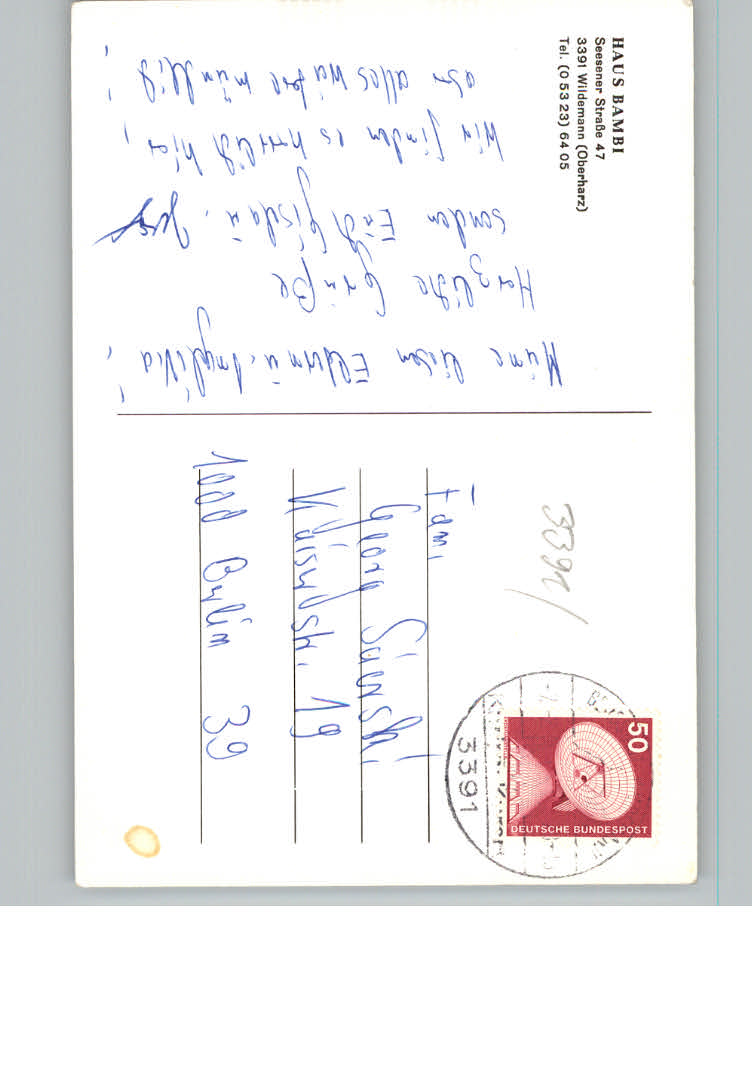 HAUS BAMBI
Seesener Straße 47
3391 Wildemann (Oberharz)
Tel. (0 53 23) 64 05
Meine lieben Eltern u. Angelika,
Herzliche Grüße
senden Euch Gisela u.
wir finden es herrlich hier,
aber alles weitere mündlich
3391
50
DEUTSCHE BUNDESPOST
3391
Fam.
Georg
19
1000 Berlin 39